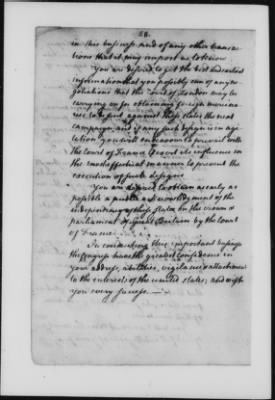 58.
in this business, and of any other transac-
tions that it may import us to know.
You are desired to get the best and earliest
information that you possibly can of any ne-
gotiations that the court of London may be
carrying on for obtaining foreign mercena-
ries to be sent against these states the next
campaign; and if any such design is in agi-
tation you will endeavour to prevail with
the court of France to exert its influence in
the most effectual manner to prevent the
execution of such designs.
You are desired to obtain as early as
possible a public acknowledgment of the
independency of these states on the crown &
parliament of Great Britain by the court
of France.
In conducting this important business
the Congress have the greatest confidence in
your address, abilities, vigilance & attachment
to the interests of the united states; and wish
you every success.